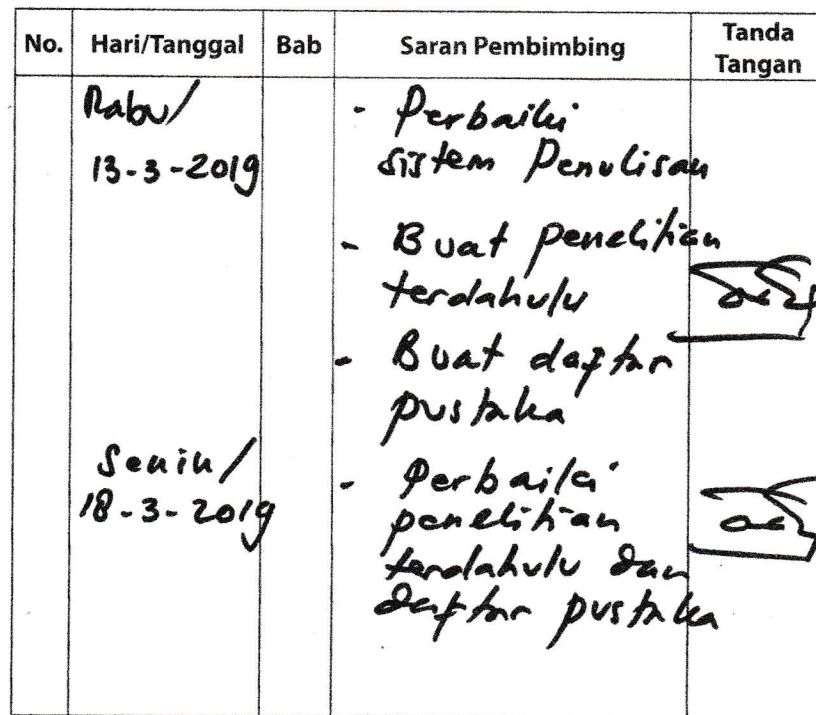 No. Hari/Tanggal Bab Saran Pembimbing Tanda Tangan
Rabu/ - Perbaiki
13-3-2019 sistem Penulisan
- Buat penelitian
terdahulu
- Buat daftar
pustaka
Senin/ - Perbaiki
18-3-2019 penelitian
terdahulu dan
daftar pustaka